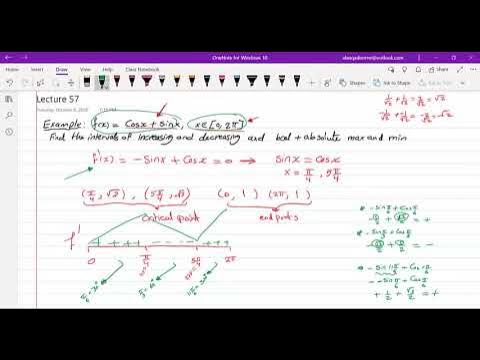 OneNote for Windows 10
Home Insert Draw View Help Class Notebook
Lecture 57
Example: f(x) = Cosx + sinx, x∈[0, 2π]
Find the intervals of increasing and decreasing and local + absolute max and min
f'(x) = -Sinx + Cosx = 0 → Sinx = Cosx
x = π/4, 5π/4
1/√2 + 1/√2 = 2/√2 = √2
(π/4, √2), (5π/4, -√2) (0, 1) (2π, 1)
critical point endpoints
f' + + + + - - - - + + +
0 π/4 5π/4 2π
π/6 = 30° π/3 = 60° 11π/6 = 330°
-Sin π/6 + Cos π/6
-1/2 + √3/2 = +
-Sin π/3 + Cos π/3
-√3/2 + 1/2 = -
-Sin 11π/6 + Cos 11π/6
+ 1/2 + √3/2 = +